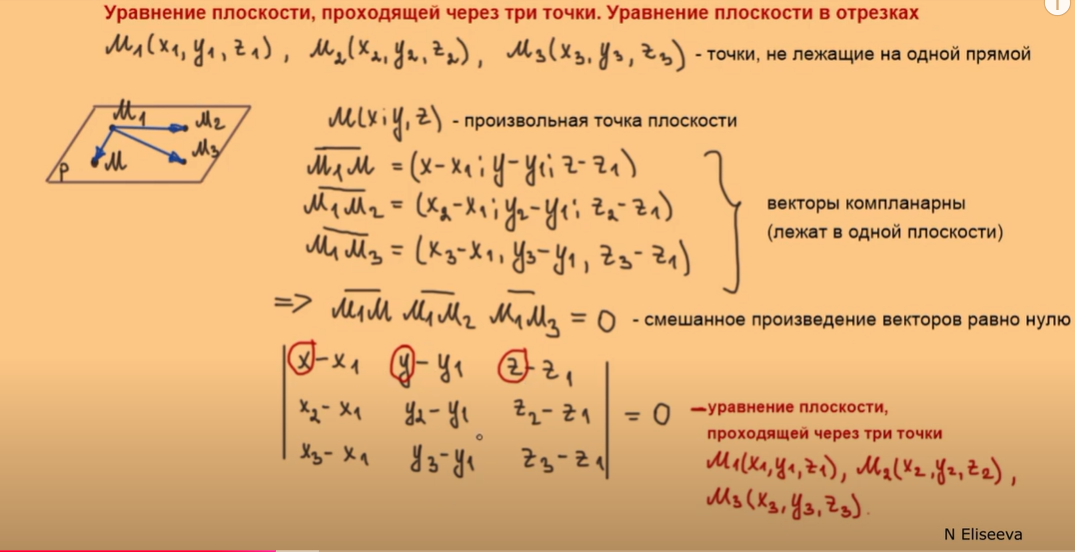 Уравнение плоскости, проходящей через три точки. Уравнение плоскости в отрезках
M₁(x₁, y₁, z₁) , M₂(x₂, y₂, z₂) , M₃(x₃, y₃, z₃) - точки, не лежащие на одной прямой
M₁
M₂
M₃
M
P
M(x; y, z) - произвольная точка плоскости
M₁M = (x-x₁; y-y₁; z-z₁)
M₁M₂ = (x₂-x₁; y₂-y₁; z₂-z₁)
M₁M₃ = (x₃-x₁, y₃-y₁, z₃-z₁)
векторы компланарны
(лежат в одной плоскости)
=> M₁M M₁M₂ M₁M₃ = 0 - смешанное произведение векторов равно нулю
x-x₁ y-y₁ z-z₁
x₂-x₁ y₂-y₁ z₂-z₁ = 0
x₃-x₁ y₃-y₁ z₃-z₁
—уравнение плоскости,
проходящей через три точки
M₁(x₁,y₁,z₁), M₂(x₂,y₂,z₂),
M₃(x₃,y₃,z₃).
N Eliseeva